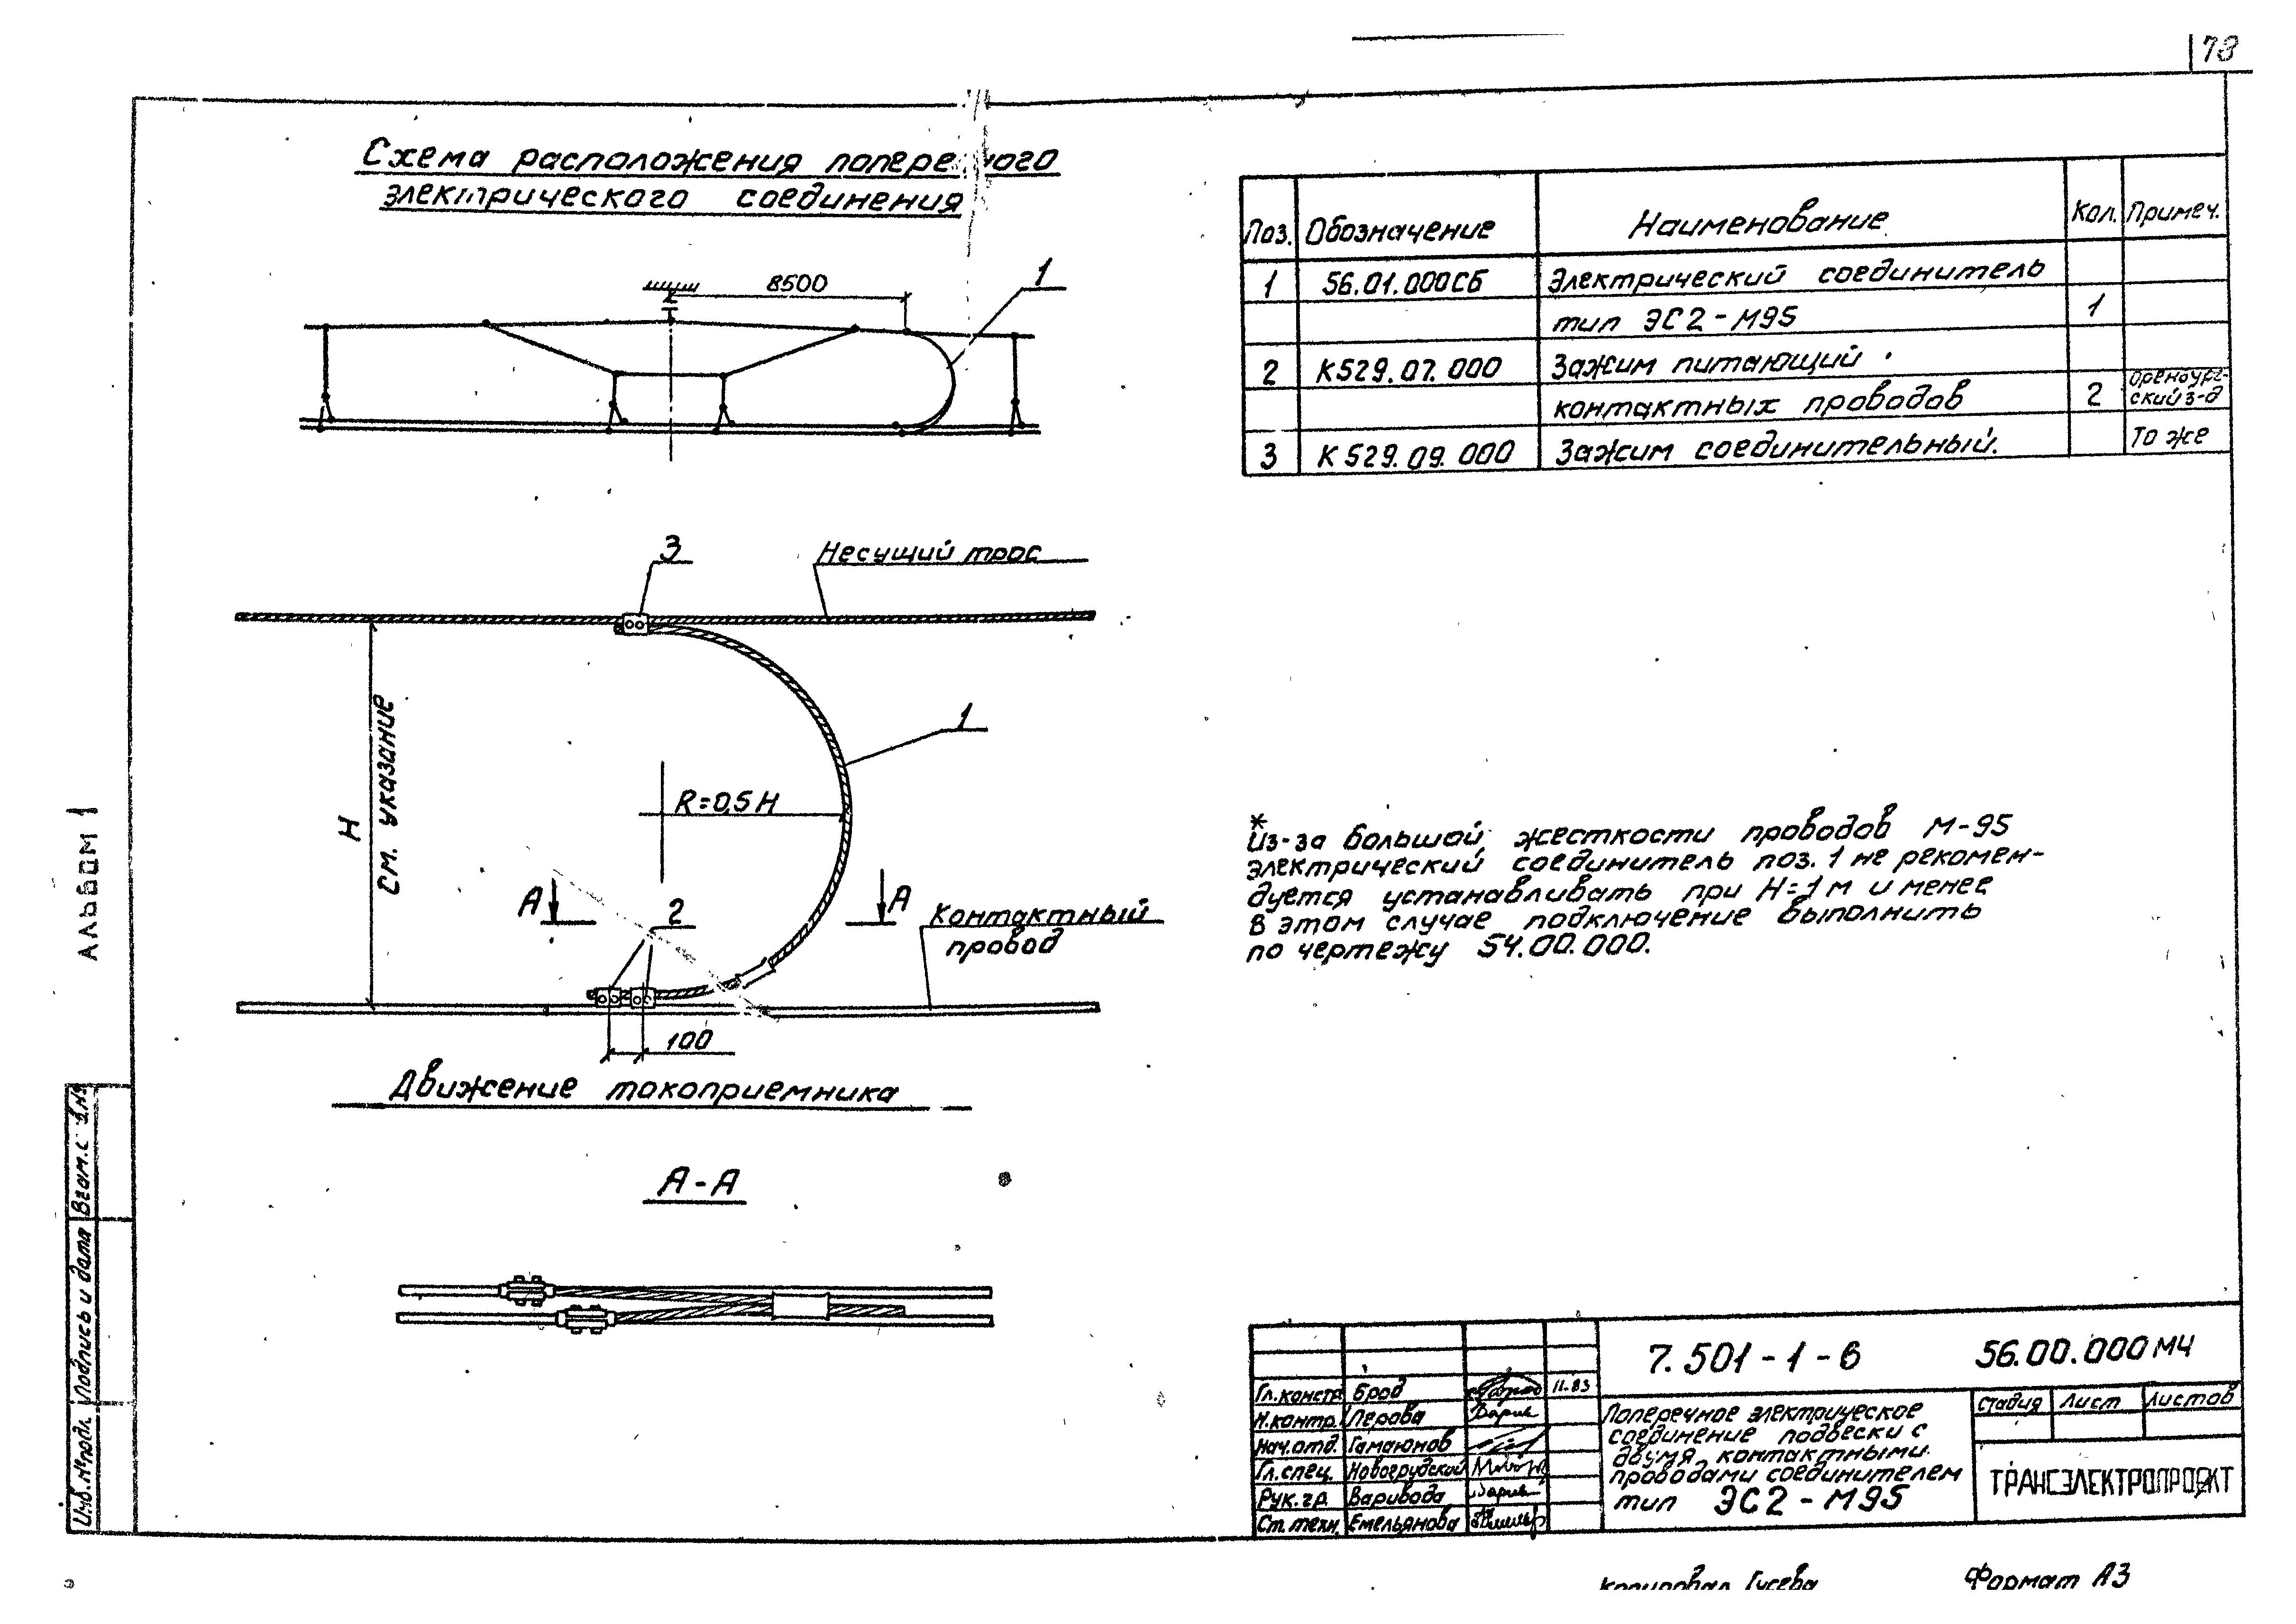 78
Схема расположения попере ного
электрического соединения
8500
1
Поз. Обозначение Наименование Кол. Примеч.
1 56.01.000СБ Электрический соединитель
тип ЭС2-М95 1
2 К529.07.000 Зажим питающий
контактных проводов 2 Оренбург-
ский з-д
3 К529.09.000 Зажим соединительный. То же
3
Несущий трос
H
см. указание
1
R=0,5H
А А
2
Контактный
провод
100
Движение токоприемника
А-А
*
Из-за большой жесткости проводов М-95
электрический соединитель поз. 1 не рекомен-
дуется устанавливать при H=1м и менее
В этом случае подключение выполнить
по чертежу 54.00.000.
АЛЬБОМ 1
Инв.№ подл. Подпись и дата
7.501-1-6 56.00.000МЧ
Гл.констр. Брод 11.83
Н.контр. Перова
Нач.отд. Гамаюнов
Гл.спец. Новогрудский
Рук.гр. Варивода
Ст.техн. Емельянова
Поперечное электрическое
соединение подвески с
двумя контактными
проводами соединителем
тип ЭС2-М95
Стадия Лист Листов
ТРАНСЭЛЕКТРОПРОЕКТ
Копировал Гусева Формат А3